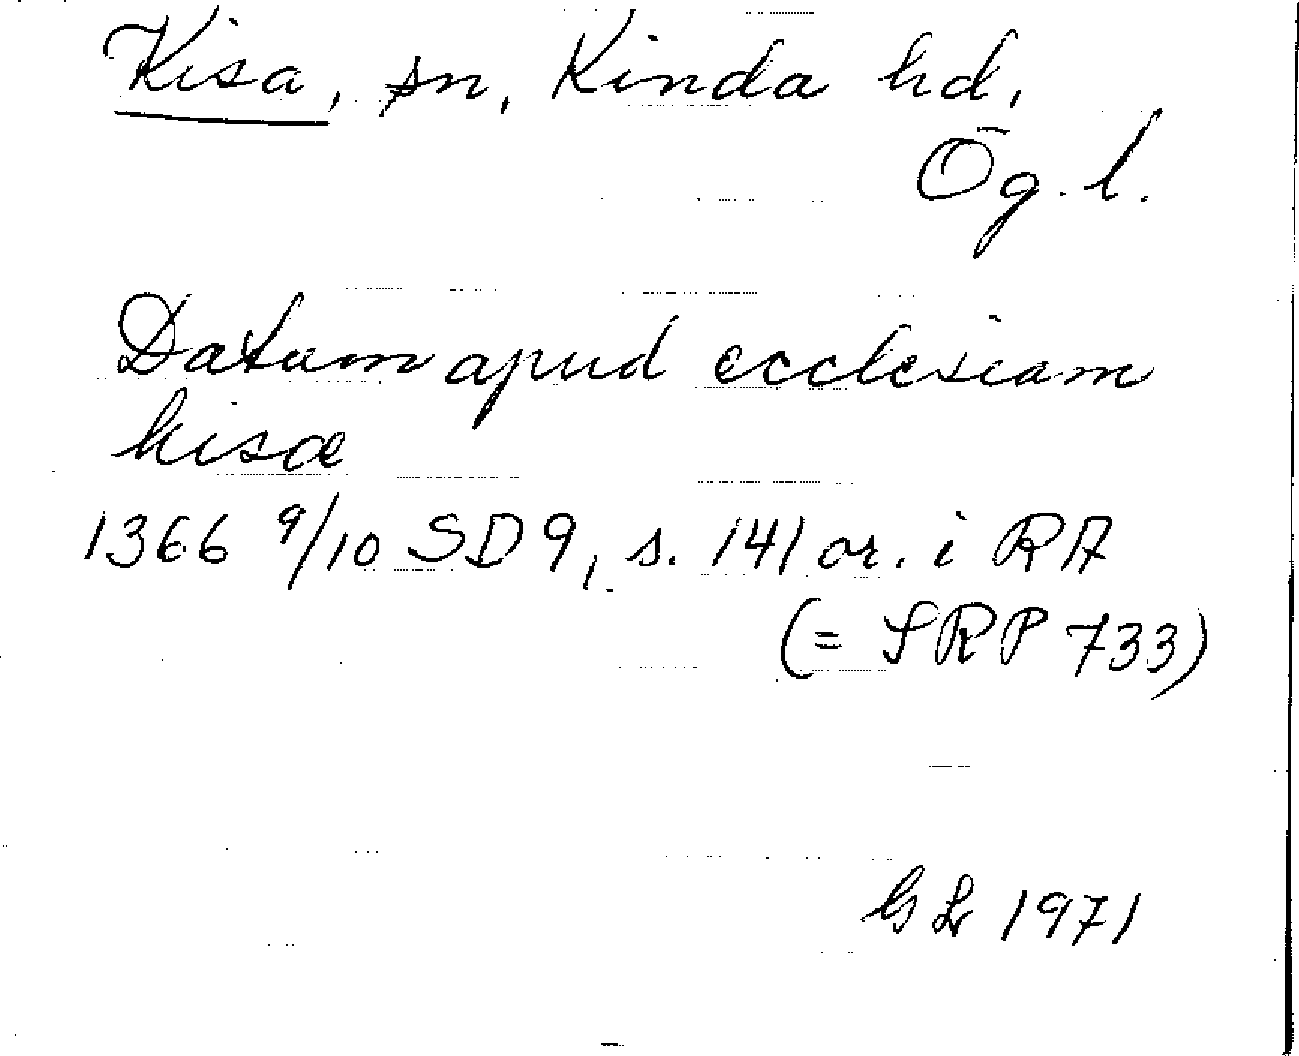 Kisa, sn, Kinda hd,
Ög. l.
Datum apud ecclesiam
kisæ
1366 9/10 SD 9, s. 141 or. i RA
(= SRP 733)
GL 1971